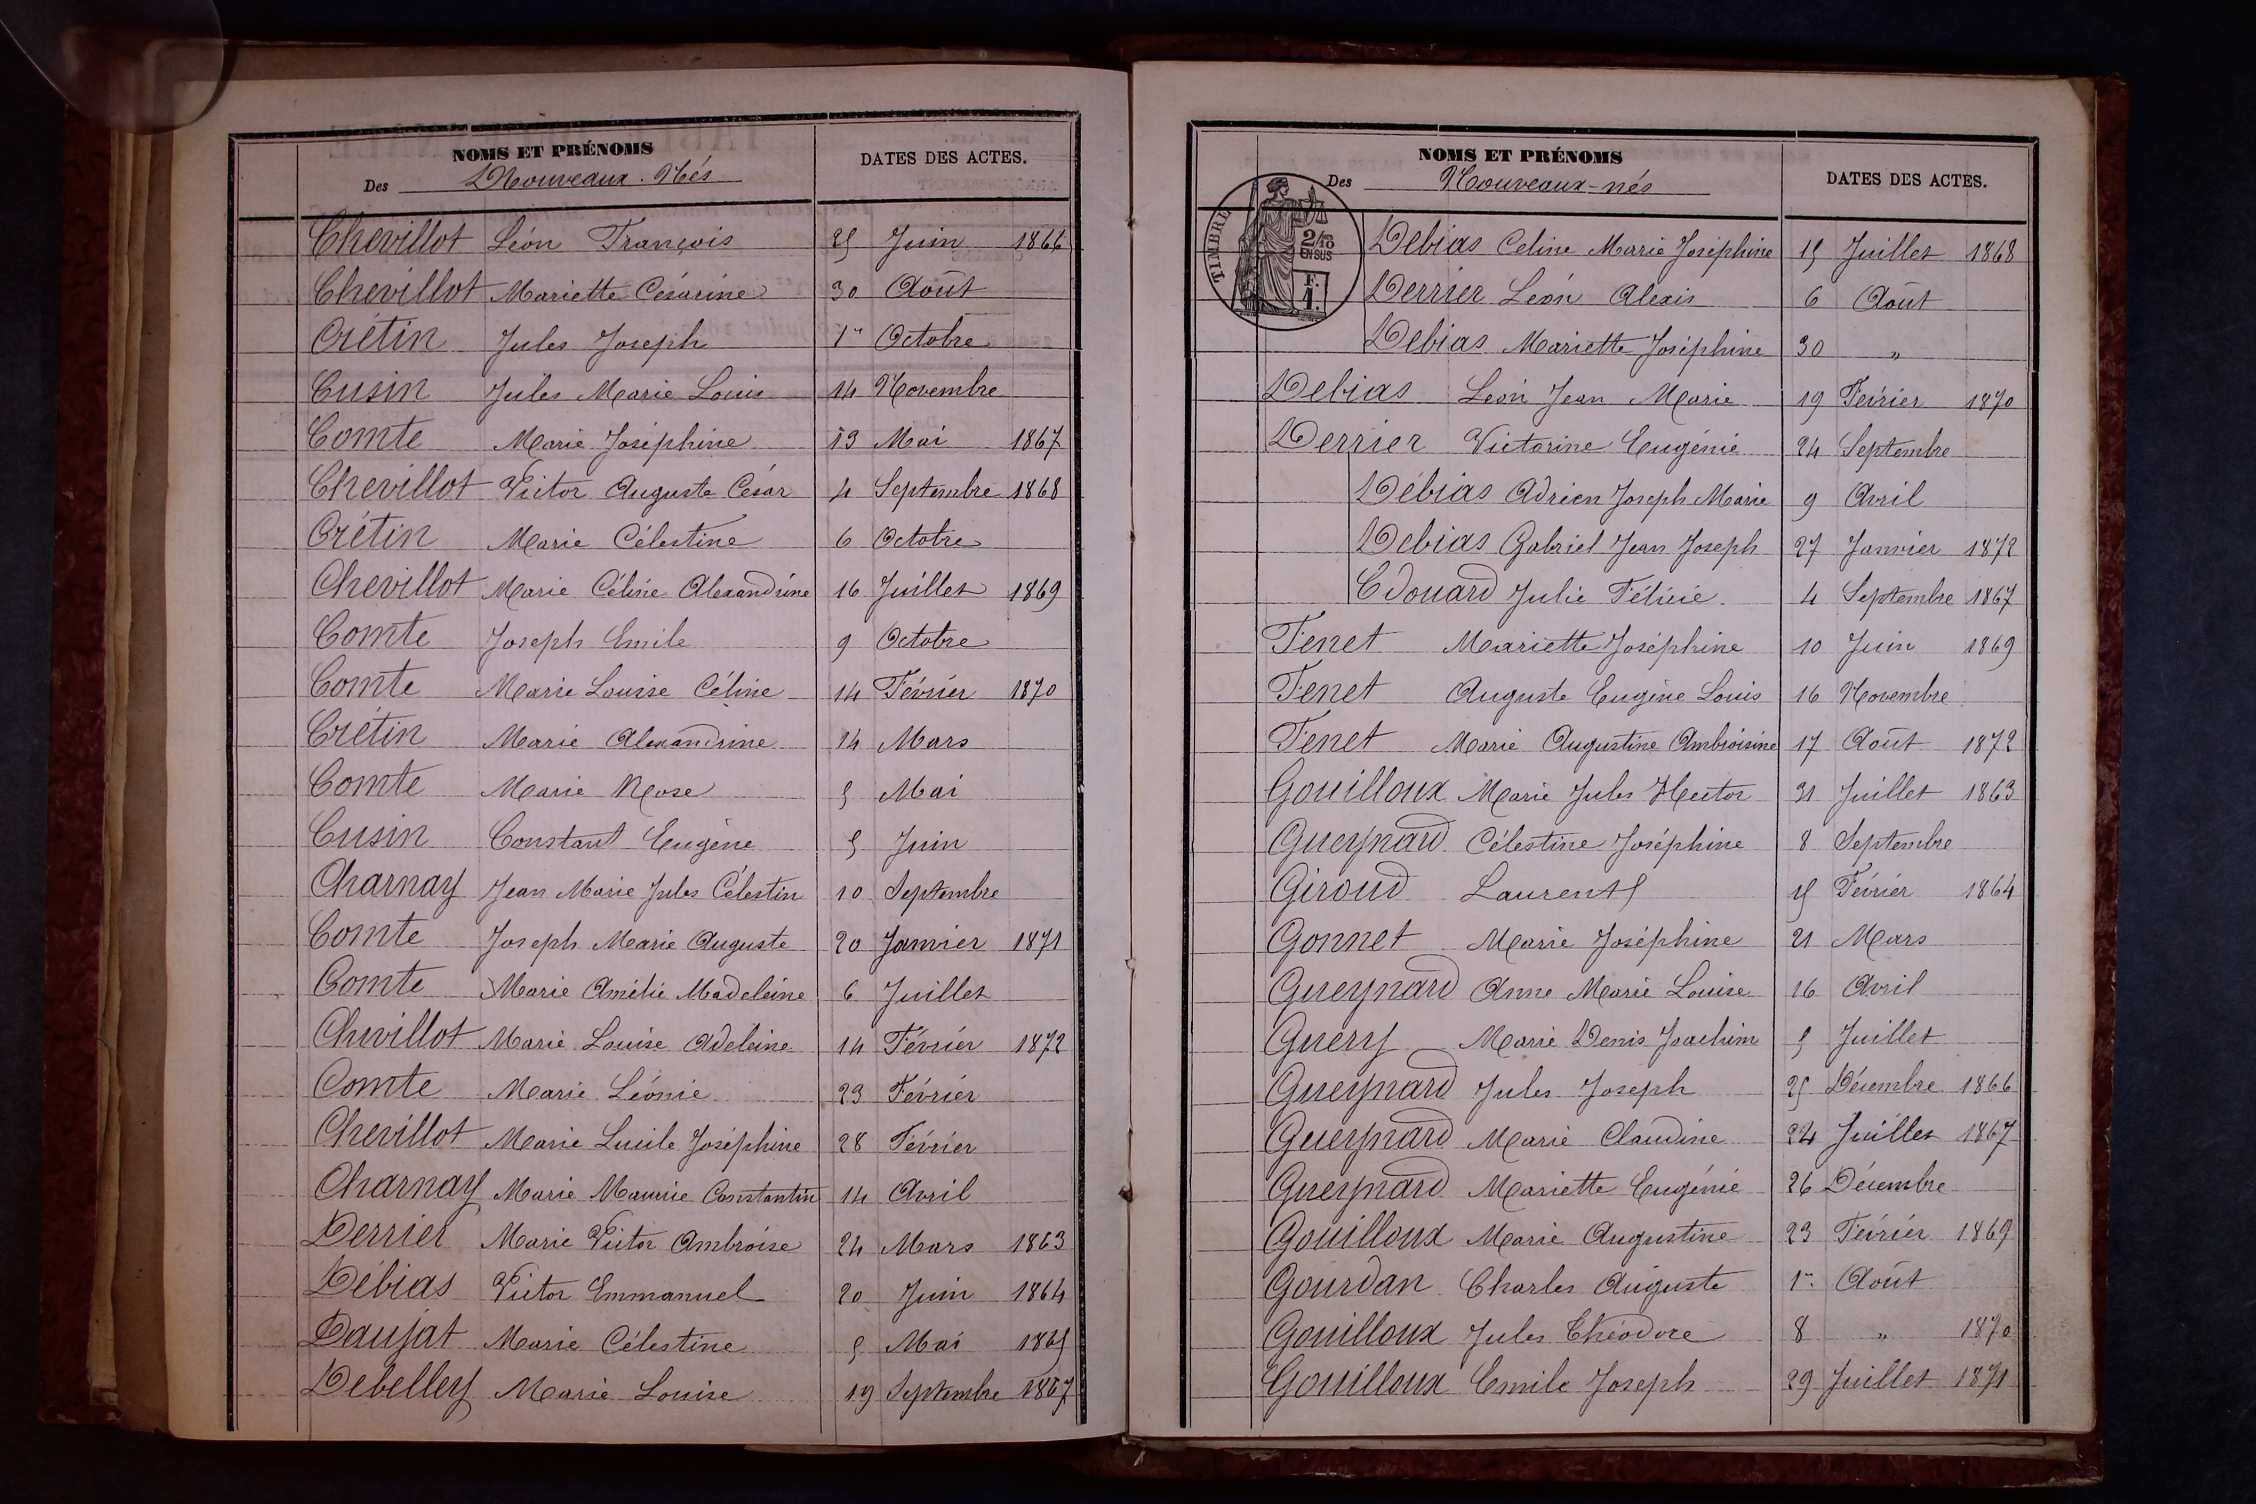 NOMS ET PRÉNOMS
DATES DES ACTES.
Des Nouveaux-Nés
Chevillot Léon François 25 Juin 1866
Chevillot Mariette Césarine 30 Août
Crétin Jules Joseph 1er Octobre
Cusin Jules Marie Louis 14 Novembre
Comte Marie Joséphine 13 Mai 1867
Chevillot Victor Auguste César 4 Septembre 1868
Crétin Marie Célestine 6 Octobre
Chevillot Marie Céline Alexandrine 16 Juillet 1869
Comte Joseph Emile 9 Octobre
Comte Marie Louise Céline 14 Février 1870
Crétin Marie Alexandrine 14 Mars
Comte Marie Rose 5 Mai
Cusin Constant Eugène 5 Juin
Charnay Jean Marie Jules Célestin 10 Septembre
Comte Joseph Marie Auguste 20 Janvier 1871
Comte Marie Amélie Madeleine 6 Juillet
Chevillot Marie Louise Adeleine 14 Février 1872
Comte Marie Léonie 23 Février
Chevillot Marie Lucile Joséphine 28 Février
Charnay Marie Maurice Constantin 14 Avril
Derrier Marie Victor Ambroise 24 Mars 1863
Débias Victor Emmanuel 20 Juin 1864
Daujat Marie Célestine 5 Mai 1865
Debelley Marie Louise 19 Septembre 1867
NOMS ET PRÉNOMS
DATES DES ACTES.
Des Nouveaux-nés
TIMBRE
2/10
EN SUS
F.
1.
Débias Celine Marie Joséphine 15 Juillet 1868
Derrier Léon Alexis 6 Août
Debias Mariette Joséphine 30 "
Debias Léon Jean Marie 19 Février 1870
Derrier Victorine Eugénie 24 Septembre
Débias Adrien Joseph Marie 9 Avril
Debias Gabriel Jean Joseph 27 Janvier 1872
Edouard Julie Félicie. 4 Septembre 1867
Fenet Mariette Joséphine 10 Juin 1869
Fenet Auguste Eugène Louis 16 Novembre
Fenet Marie Augustine Ambroisine 17 Août 1872
Gouilloux Marie Jules Hector 31 Juillet 1863
Gueynard Célestine Joséphine 8 Septembre
Giroud Laurent 15 Février 1864
Gonnet Marie Joséphine 21 Mars
Gueynard Anne Marie Louise 16 Avril
Guery Marie Denis Joachim 5 Juillet
Gueynard Jules Joseph 25 Décembre 1866
Gueynard Marie Claudine 24 Juillet 1867
Gueynard Mariette Eugénie 26 Décembre
Gouilloux Marie Augustine 23 Février 1869
Gourdan Charles Auguste 1er Août
Gouilloux Jules Théodore 8 " 1870
Gouilloux Emile Joseph 29 Juillet 1871